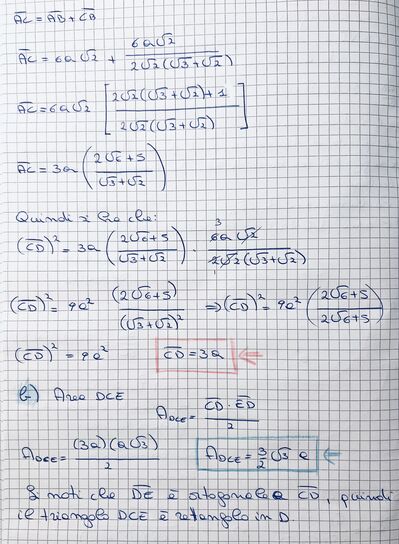 AC = AB + CB
AC = 6a√2 + 6a√2 / 2√2(√3+√2)
AC = 6a√2 [ 2√2(√3+√2)+1 / 2√2(√3+√2) ]
AC = 3a ( 2√6+5 / √3+√2 )
Quindi x che:
(CD)² = 3a ( 2√6+5 / √3+√2 ) · 6a√2 / 2√2(√3+√2) 3 1
(CD)² = 9a² (2√6+5) / (√3+√2)² ⇒ (CD)² = 9a² ( 2√6+5 / 2√6+5 )
(CD)² = 9a² CD = 3a ←
b) Area DCE
A DCE = CD · ED / 2
A DCE = (3a)(a√3) / 2 A DCE = 3/2 √3 a ←
Si noti che DE è ortogonale a CD, quindi
il triangolo DCE è retangolo in D.